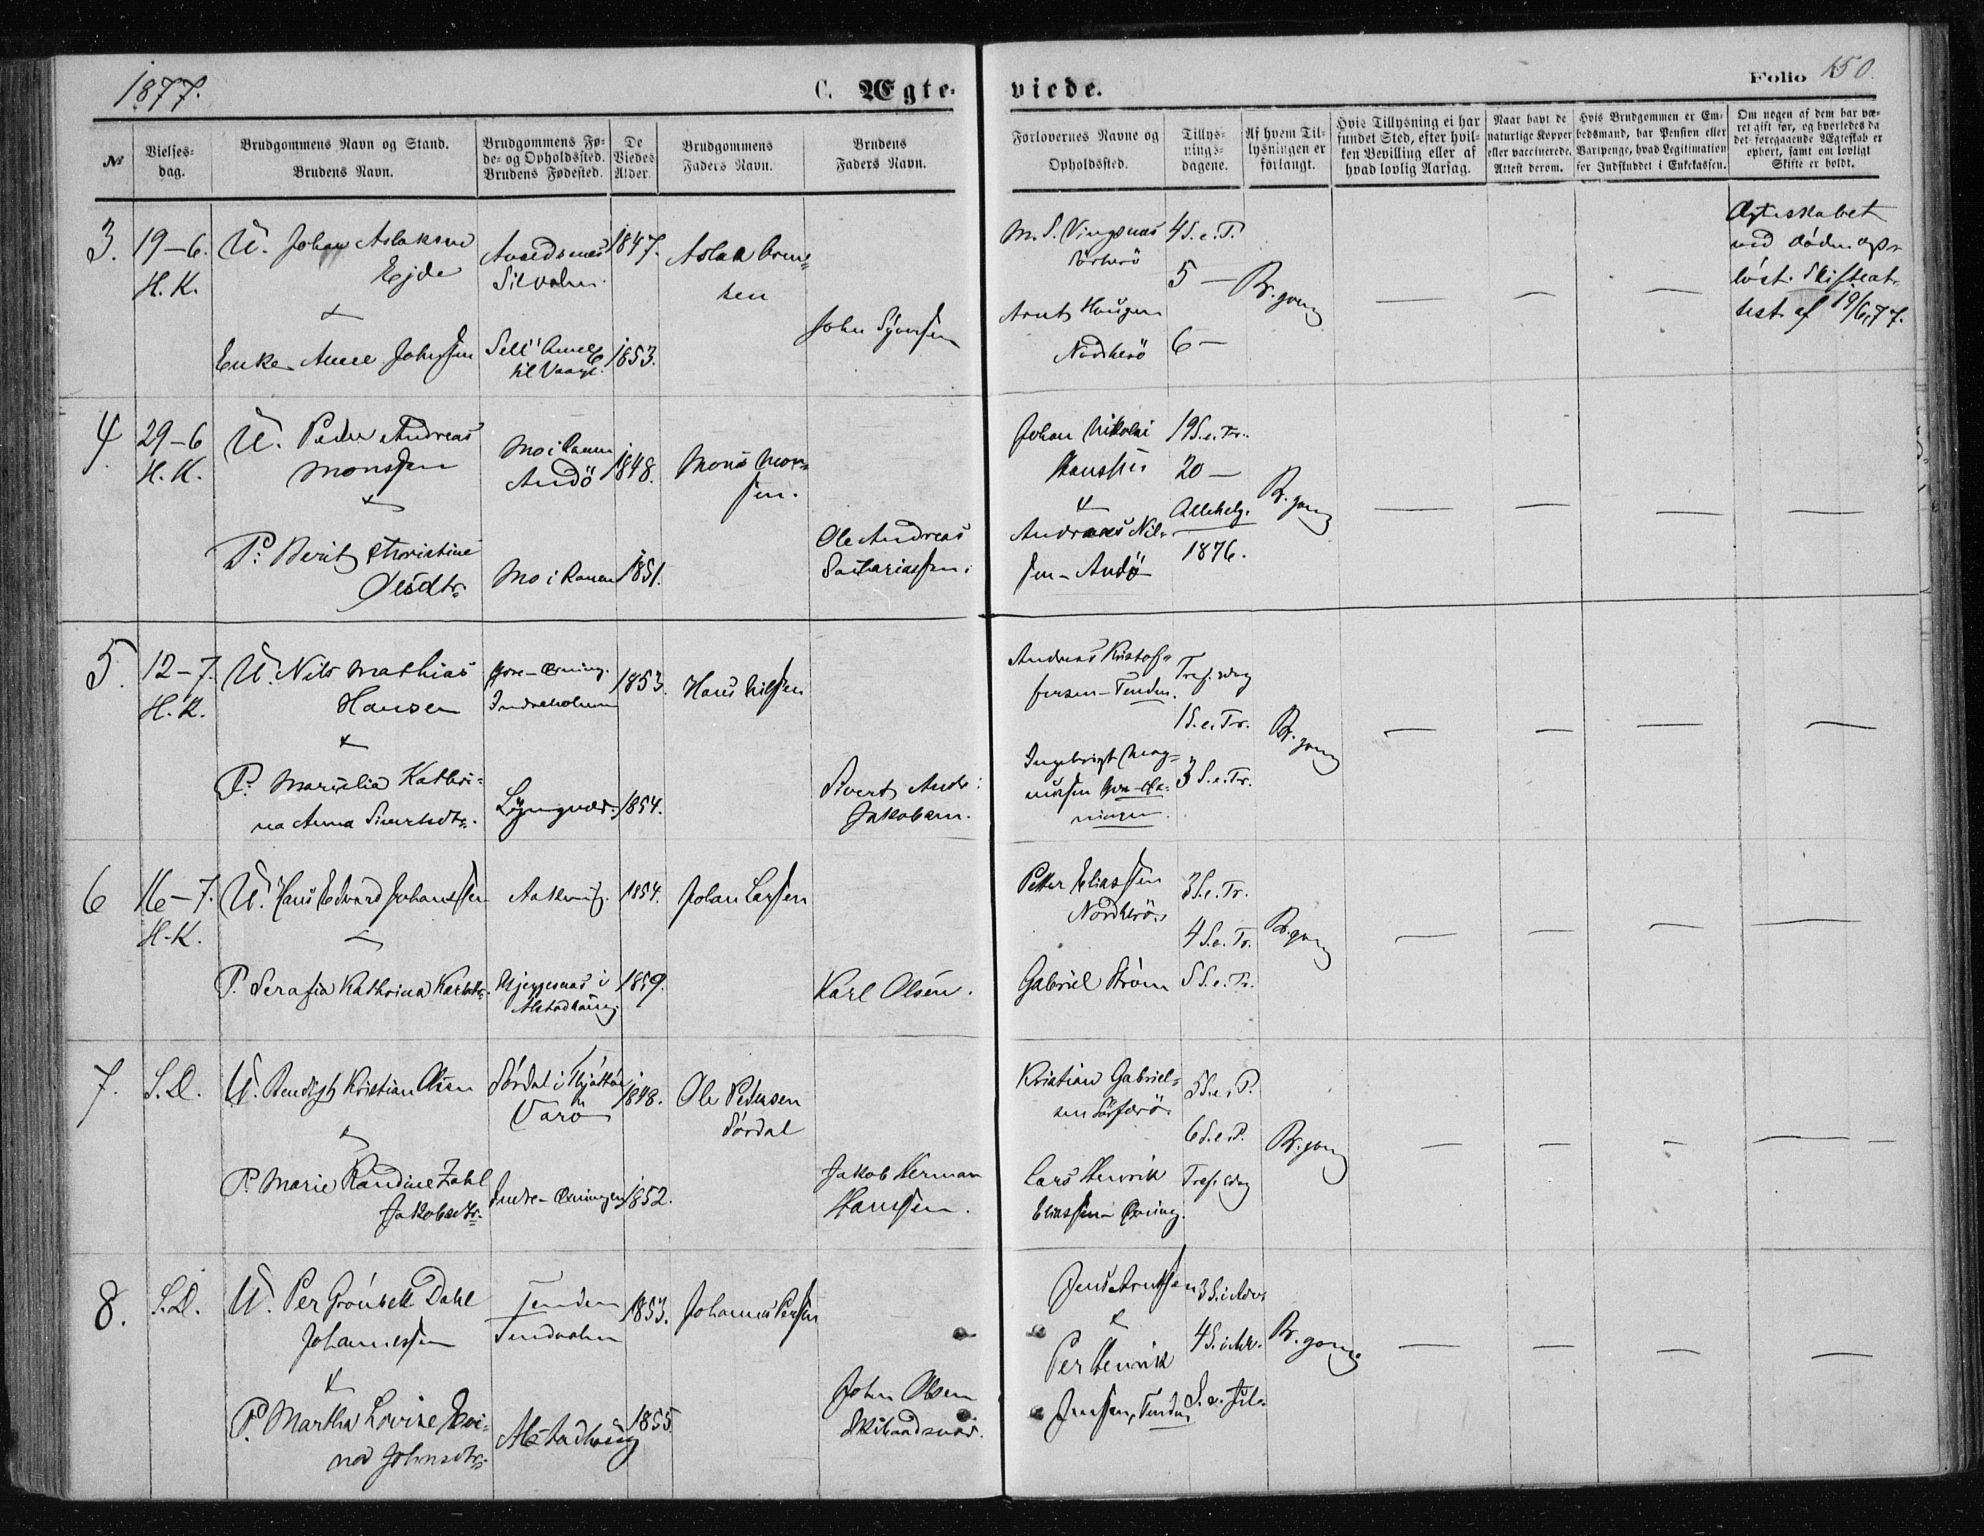 1877.
C. Ægte-
viede.
Folio 150.
№
Vielses-
dag.
Brudgommens Navn og Stand.
Brudens Navn.
Brudgommens Fø-
de- og Opholdssted.
Brudens Fødested.
De
Viedes
Alder.
Brudgommens
Faders Navn.
Brudens
Faders Navn.
Forlovernes Navne og
Opholdssted.
Tillys-
nings-
dagene.
Af hvem Til-
lysningen er
forlangt.
Hvis Tillysning ei har
fundet Sted, efter hvil-
ken Bevilling eller af
hvad lovlig Aarsag.
Naar havt de
naturlige Kopper
eller vaccinerede.
Attest derom.
Hvis Brudgommen er Em-
bedsmand, har Pension eller
Vartpenge, hvad Legitimation
for Indskuddet i Enkekassen.
Om nogen af dem har væ-
ret gift før, og hvorledes da
det foregaaende Ægteskab er
ophørt, samt om lovligt
Skifte er holdt.
3. 19-6.
H. K.
U. Johan Aslaksen
Ejde
Enke Anne Johnssen
1847.
1853.
Aslak
sen
John
M. S. Vingsnæs
Arnt Haugen
Nordherö
4 S. e. P.
5 —
6 —
Br. gom
Ægteskabet
ved døden op-
løst. Skifteat-
test af 19/6,77.
4. 29-6
H. K.
U. Peder Andreas
Monssen
P. Berit Christine
Olsdtr.
Mo i Ranen
Andö
Mo i Ranen
1848.
1851.
Mons Mon-
sen.
Ole Andreas
Sachariassen.
Johan Nikolai
Hanssen
Andreas Nil-
sen - Andö
19 S. e. Tr.
20 —
Allehelg.
1876.
Br. gom
5. 12-7.
H. K.
U. Nils Mathias
Hansen
P. Marselia Kathri-
na Anna Sivertsdtr.
Indreholmen
Lyngvær.
1853.
1854.
Hans Nilsen
Sivert Andr.
Jakobsen.
Andreas Kristof-
fersen - Tenden.
Ingebrigt Mag-
nussen
ningen.
Tref. sdag
1 S. e. Tr.
3 S. e. Tr.
Br. gom
6 16-7.
H. K.
U. Hans Edvard Johanssen
P. Serafia Kathrina Karlsdtr.
i
Alstadhaug
1854.
1859.
Johan Larssen
Karl Olsen.
Petter Eliassen
Nordherö.
Gabriel Strøm
3 S. e. Tr.
4 S. e. Tr.
5 S. e. Tr.
Br. gom
7. S. D.
U. Bendigt Kristian Olsen
P. Marie Randine Zahl
Jakobsdtr.
Sørdal i
Indre-Øxningen
1848.
1852.
Ole Pedersen
Sørdal
Jakob Herman
Hanssen.
Kristian Gabriel-
sen
Lars Henrik
Eliassen Øxning.
5 S. e. P.
6 S. e. P.
Tref. sdag
Br. gom
8. S. D.
U. Per Grönbek Dahl
Johannessen
P. Martha Lovise
Johnsdtr.
Tenden
Alstadhaug
1853.
1855.
Johannes Persen
John Olsen
Jens Arntsen
Per Henrik
Jenssen, Tenden
3 S. i Adv.
4 S. i Adv.
S. e. Jul.
Br. gom.